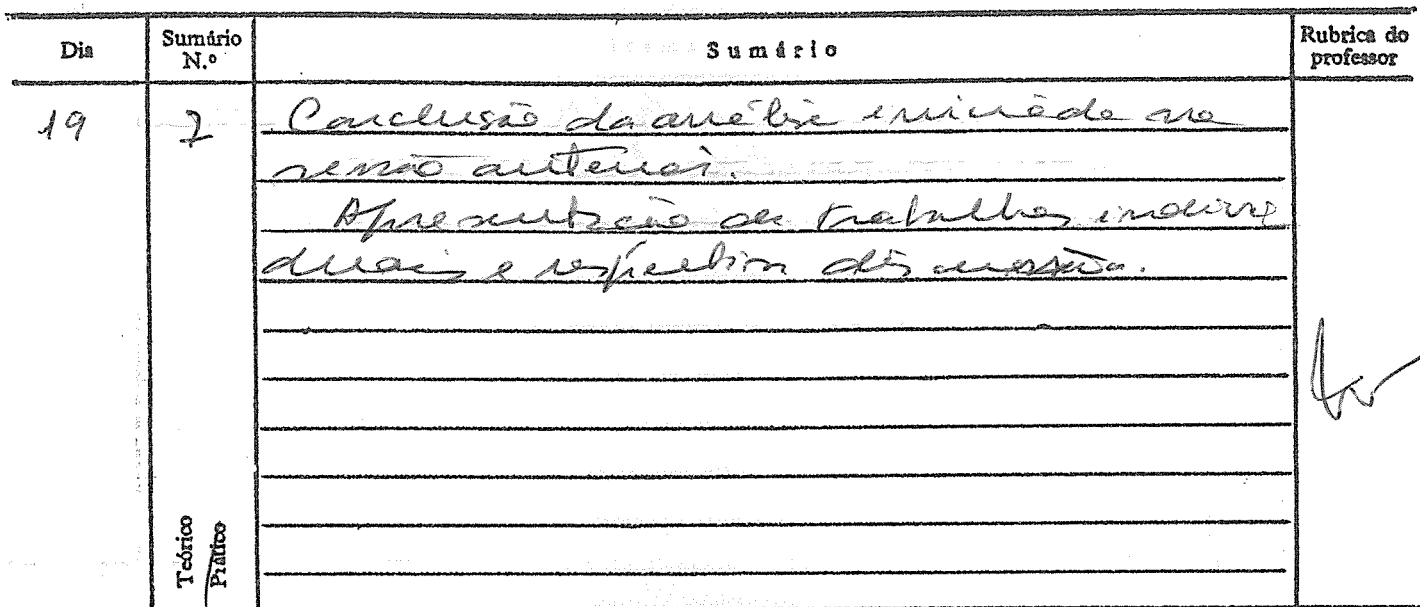 Dia
Sumário N.º
Sumário
Rubrica do professor
19
7
Conclusão da análise iniciada na
sessão anterior.
Apresentação de trabalhos indivi
duais e respectiva discussão.
Teórico
Prático